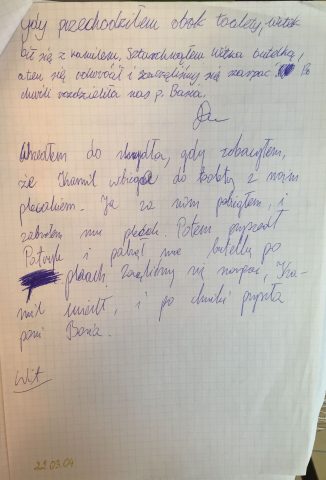 Gdy przechodziłem obok toalety, Witek
bił się z Kamilem. Sztuchnąłem Witka butelką,
a ten się odwrócił i zaczęliśmy się szarpać. Po
chwili rozdzieliła nas p. Basia.
Wszedłem do, gdy zobaczyłem,
że Kamil wbiega do toalety z moim
plecakiem. Ja za nim pobiegłem, i
zabrałem mu plecak. Potem przyszedł
Patryk i mnie butelką po
plecach. Zaczęliśmy się, Ka-
mil uciekł, i po chwili przyszła
pani Basia.
Wit
22.03.04